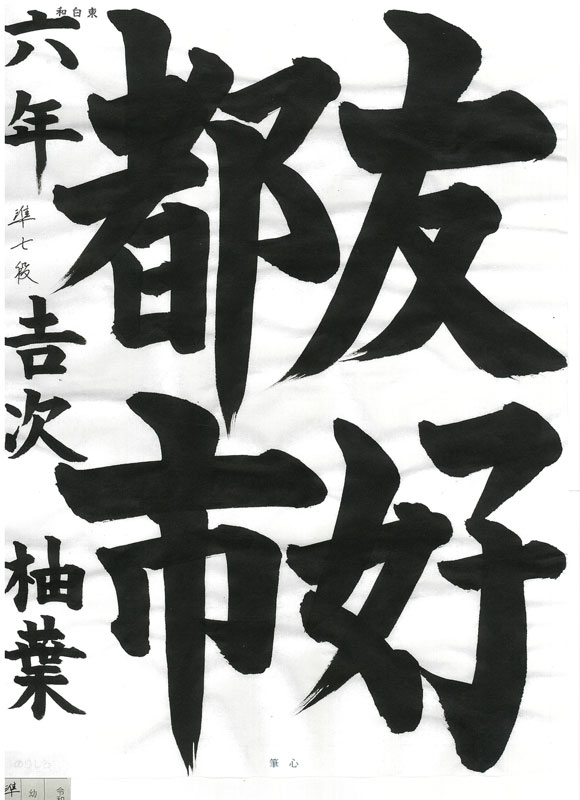 友好
都市
六年 準七段 吉次 柚葉
東白和
心筆
準
幼
令和